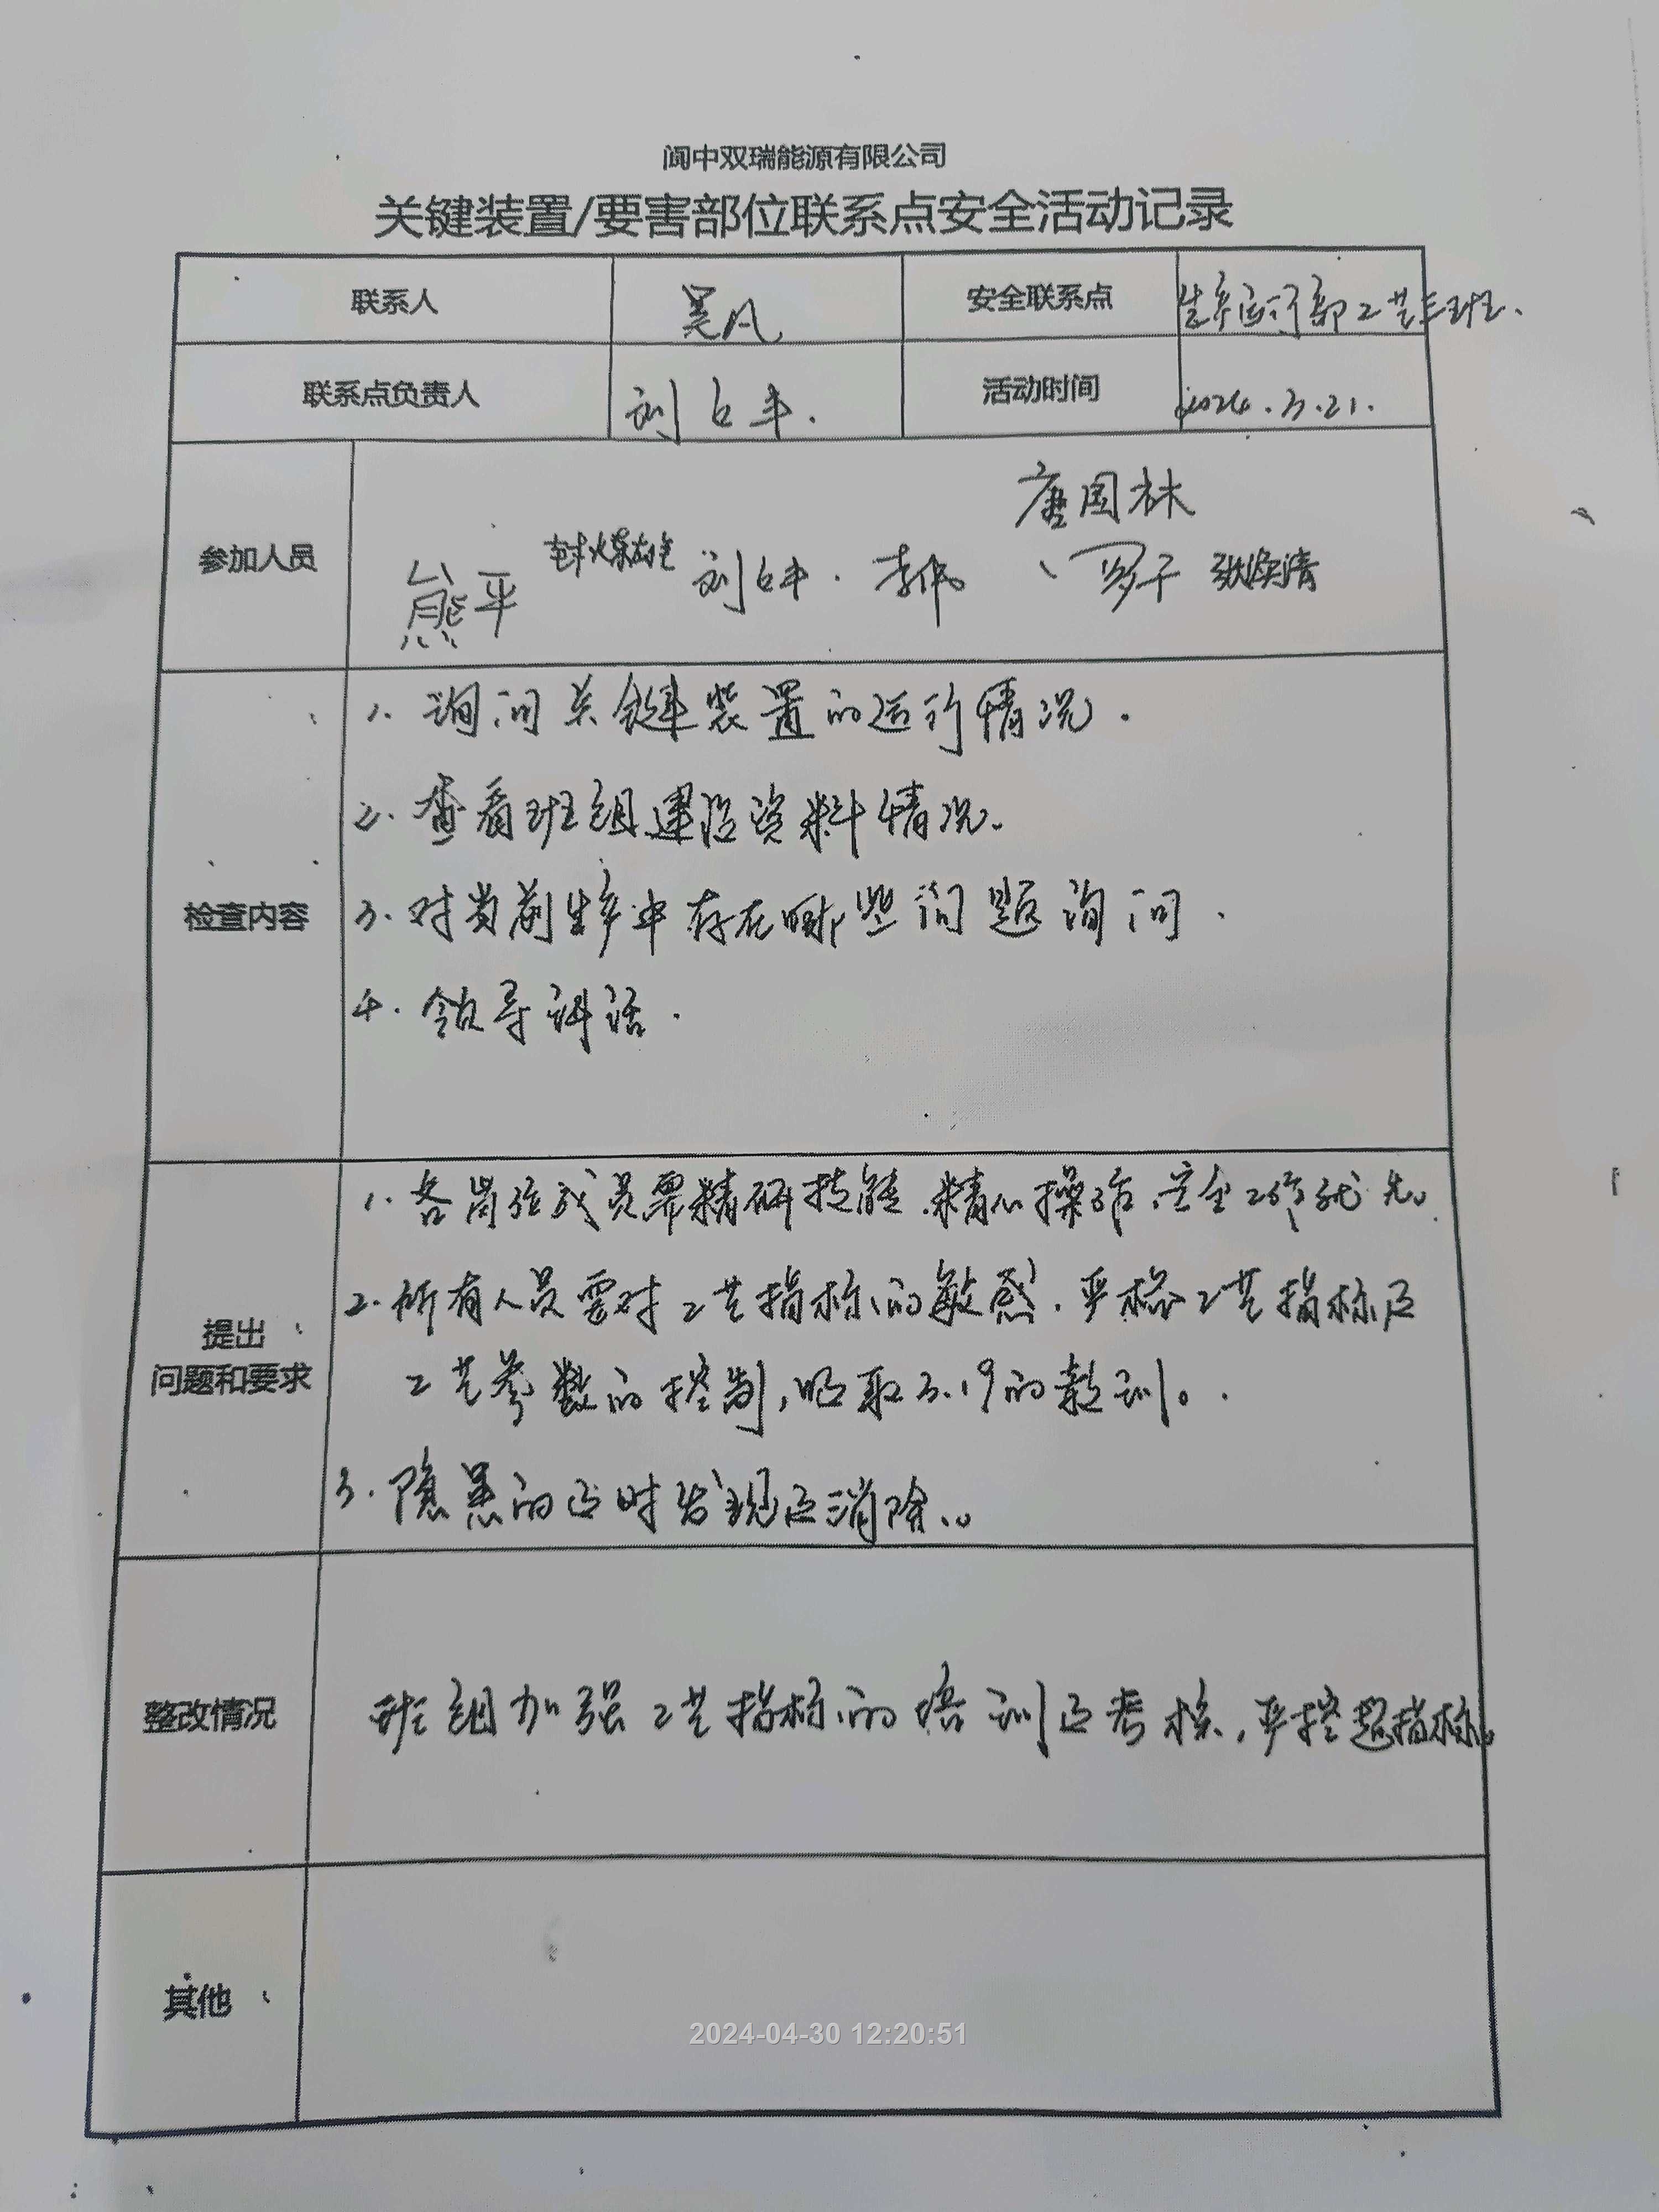 阆中双瑞能源有限公司
关键装置/要害部位联系点安全活动记录
联系人 吴凡 安全联系点 生产运行部工艺三班.
联系点负责人 刘占丰. 活动时间 2024.3.21.
唐国林
参加人员 熊平 刘占丰. 李伟 、罗千 张焕清
1. 询问关键装置的运行情况.
2. 查看班组建设资料情况.
检查内容
3. 对当前生产中存在哪些问题询问.
4. 领导讲话.
1. 各岗位成员要精研技能.精心操作.安全工作优先.
2. 所有人员要对工艺指标的敏感.严格工艺指标及
提出
问题和要求
工艺参数的控制,吸取3.19的教训。.
3. 隐患的及时发现及消除.。
整改情况 班组加强工艺指标的培训及考核,严控超指标。
其他
2024-04-30 12:20:51